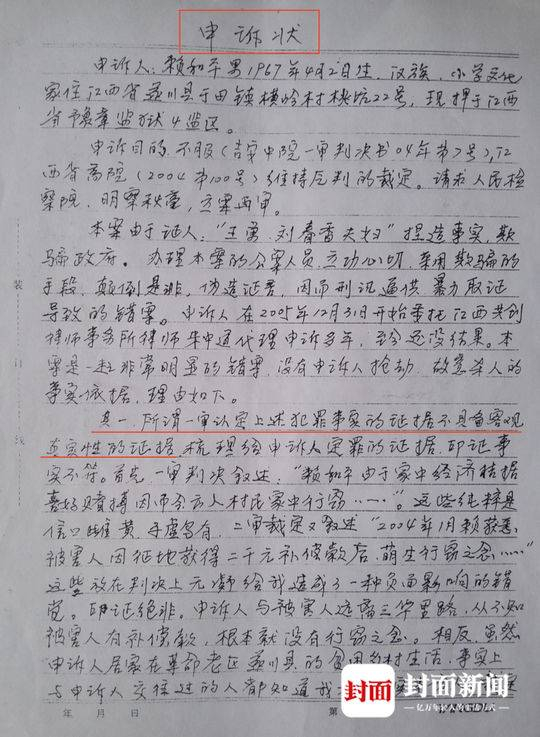 申诉状
申诉人：赖和平男1967年4月2日生，汉族，小学文化
家住江西省遂川县于田镇横岭村桃坑22号，现押于江西
省豫章监狱4监区。
申诉目的 不服(吉安中院一审判决书04年第7号)，江
西省高院(2004第100号)维持原判的裁定。请求人民检
察院，明察秋毫，立案再审。
本案由于证人："王勇、刘春香夫妇"捏造事实，欺
骗政府。办理本案的公案人员，立功心切，采用欺骗的
手段，颠倒是非，伪造证言，因而刑讯逼供 暴力取证
导致的错案。申诉人在2005年12月31日开始委托江西共创
律师事务所律师朱中道代理申诉多年，至今还没结果。本
案是一起非常明显的错案，没有申诉人抢劫、故意杀人的
事实依据，理由如下。
其一、所谓一审认定上述犯罪事实的证据不具备客观
真实性的证据，梳理给申诉人定罪的证据，印证事
实不符。首先，一审判决叙述："赖和平由于家中经济拮据
喜好赌搏因而今云入村民家中行窃……"。这些纯粹是
信口雌黄，子虚乌有，二审裁定又叙述"2004年1月赖获悉，
被害人因征地获得二千元补偿款后，萌生行窃之念……"
这些放在判决上无疑给我造成了一种负面影响的错
觉。印证绝非。申诉人与被害人远离三华里路，从不知
被害人有补偿款，根本就没有行窃之念。相反，虽然
申诉人居家在革命老区遂川县的贫困乡村生活，事实上
与申诉人交往过的人都知道我
装
订
线
年 月 日
第
封面
封面新闻
亿万年轻人的生活方式